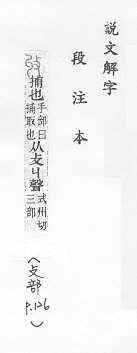 說文解字
段注本
捕也手部曰捕取也从攴丩聲式州切三部
(攴部 p.126)